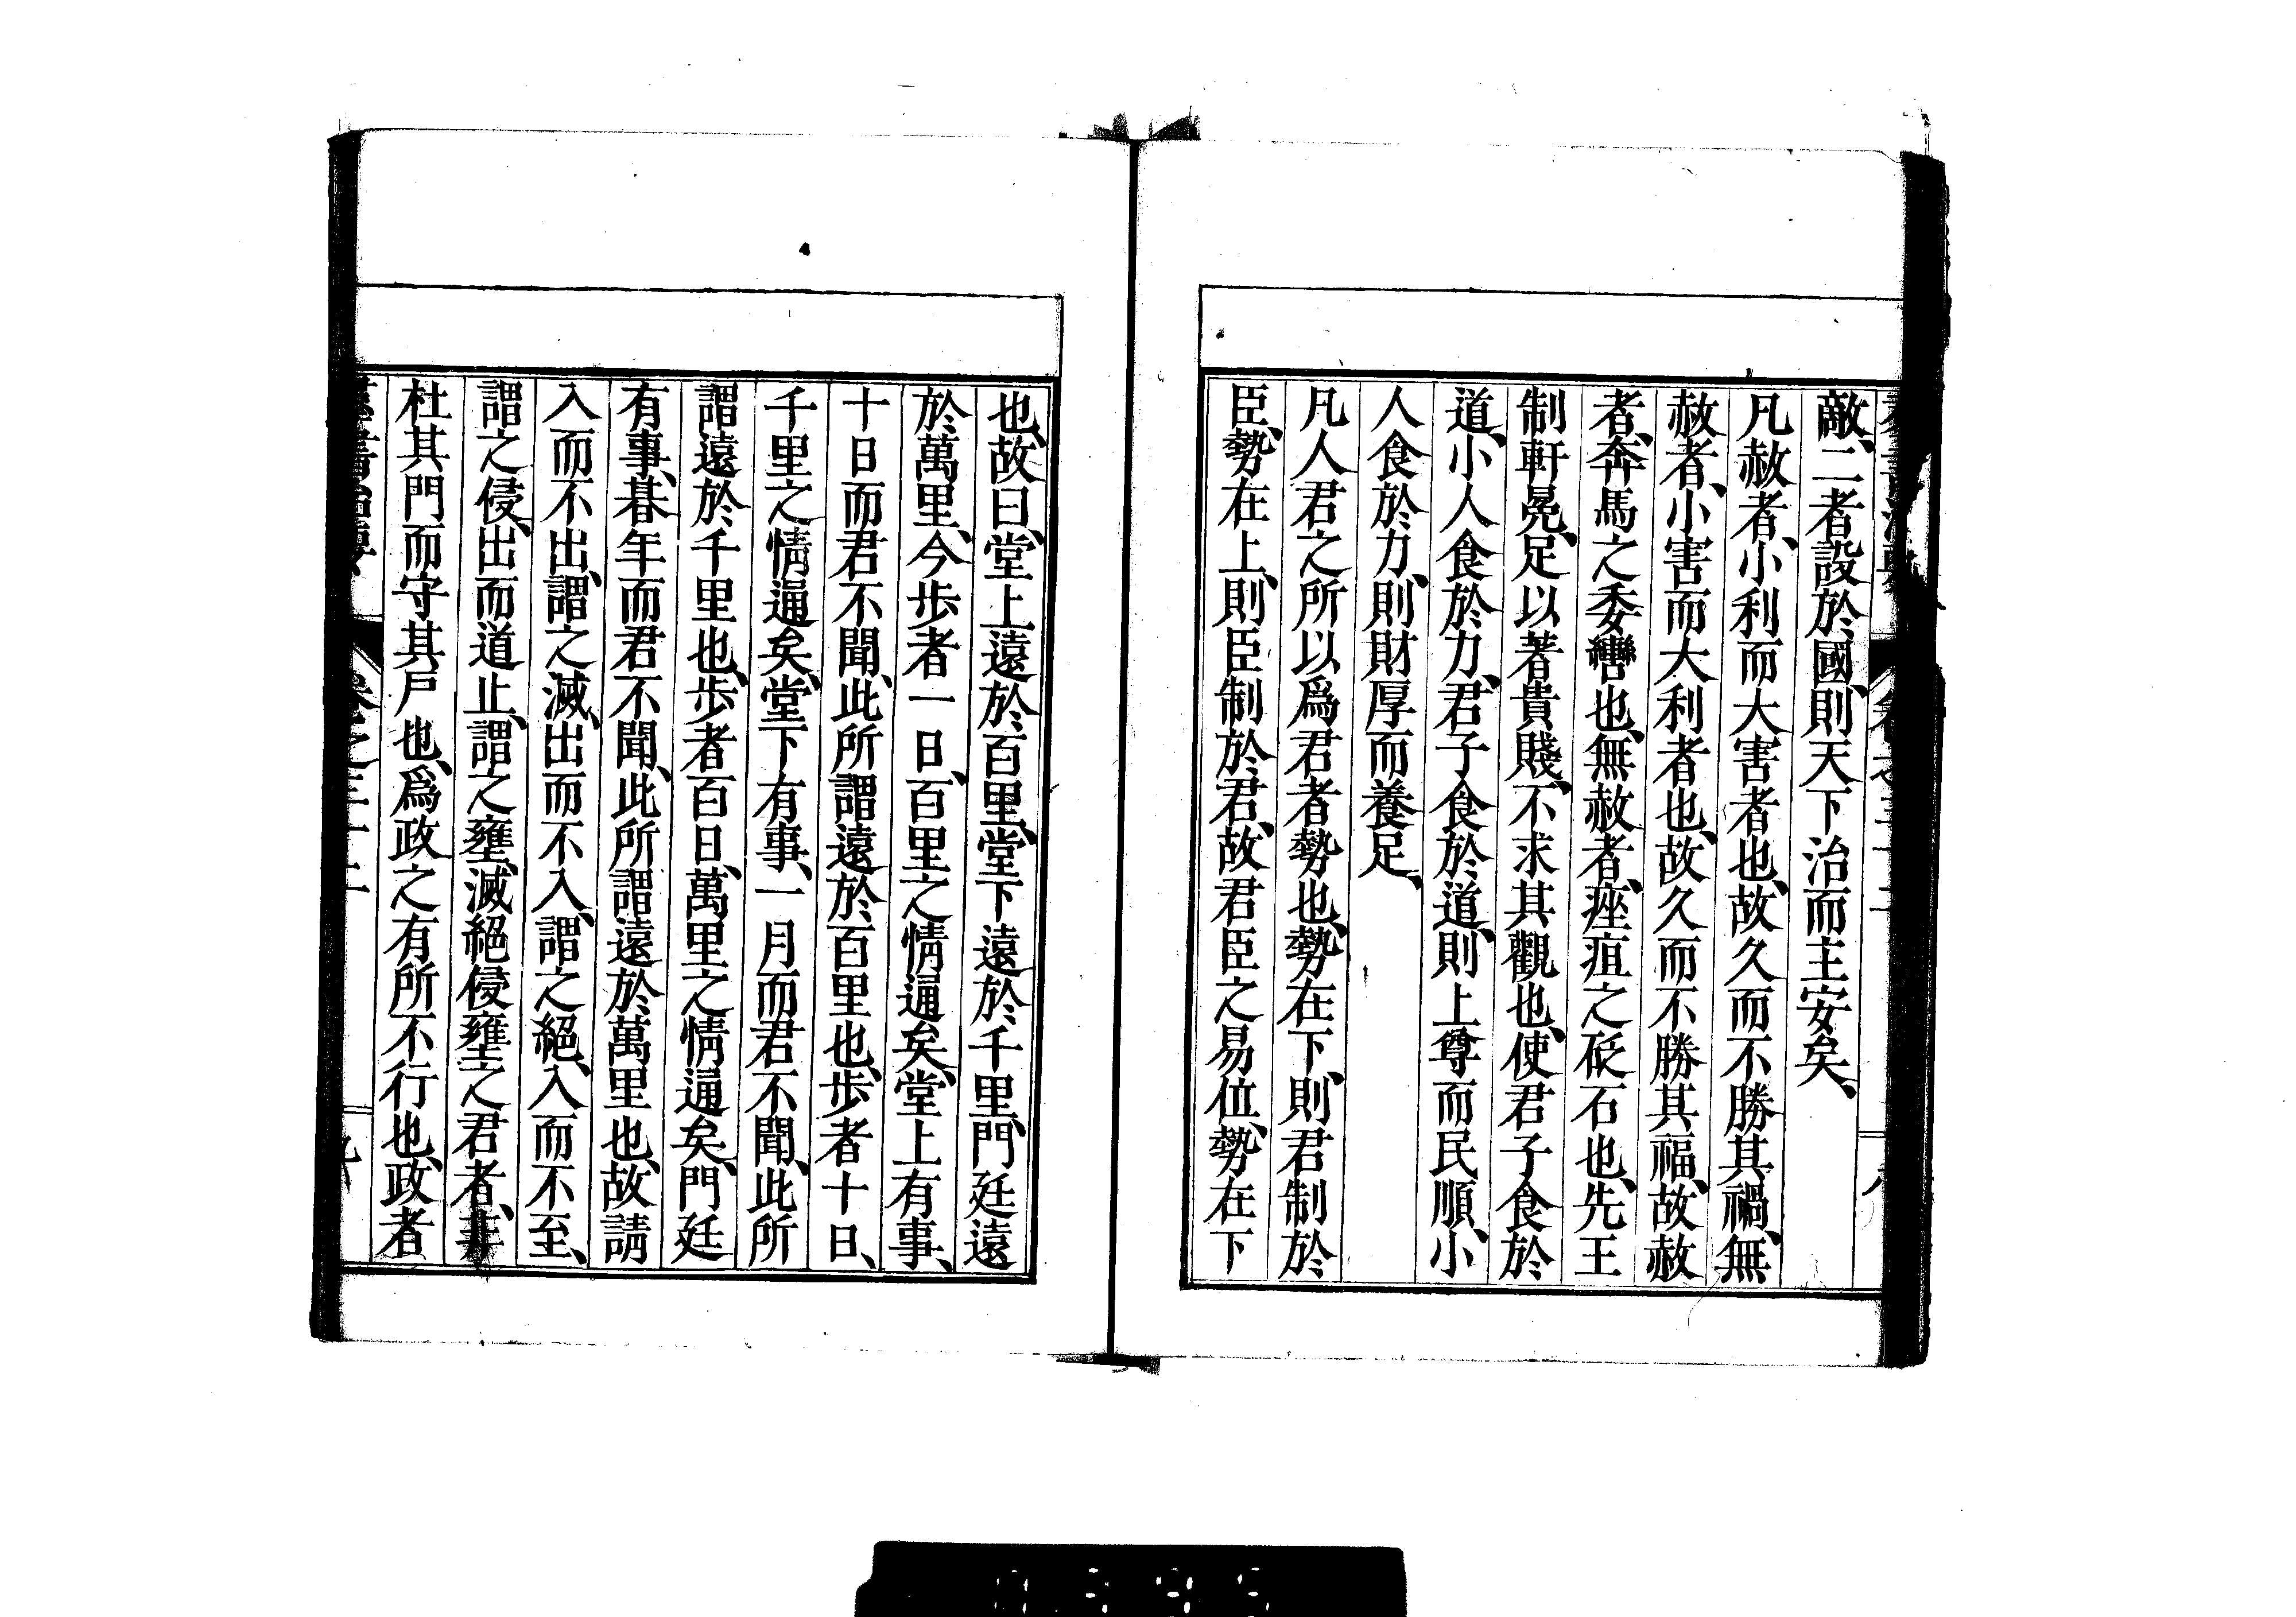 敵、二者設於國、則天下治而主安矣、
凡赦者、小利而大害者也、故久而不勝其禍、無
赦者、小害而大利者也、故久而不勝其福、故赦
者、奔馬之委轡也、無赦者、痤疽之砭石也、先王
制軒冕、足以著貴賤、不求其觀也、使君子食於
道、小人食於力、君子食於道、則上尊而民順、小
人食於力、則財厚而養足、
凡人君之所以爲君者勢也、勢在下、則君制於
臣、勢在上、則臣制於君、故君臣之易位、勢在下
也、故曰、堂上遠於百里、堂下遠於千里、門廷遠
於萬里、今步者一日、百里之情通矣、堂上有事、
十日而君不聞、此所謂遠於百里也、步者十日、
千里之情通矣、堂下有事、一月而君不聞、此所
謂遠於千里也、步者百日、萬里之情通矣、門廷
有事、朞年而君不聞、此所謂遠於萬里也、故請
入而不出、謂之滅、出而不入、謂之絕、入而不至、
謂之侵、出而道止、謂之壅、滅絕侵壅之君者、
杜其門而守其戶也、爲政之有所不行也、政者
群書治要 卷之三十二 九